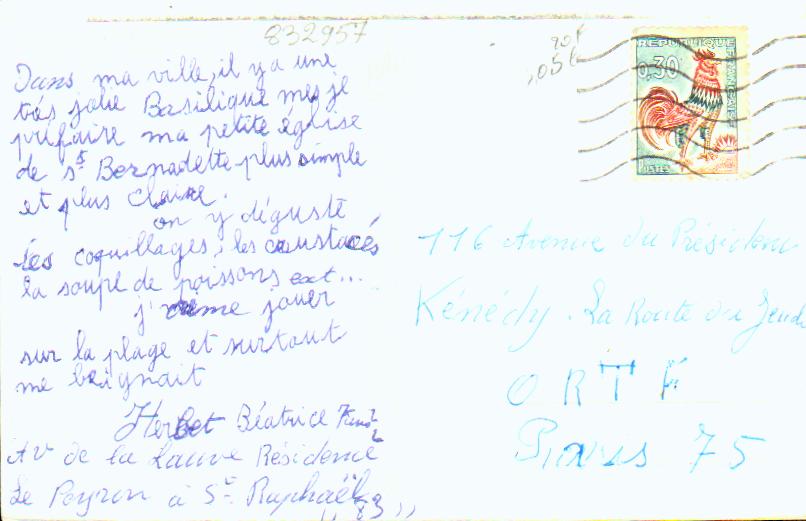 832957
90f
,056
REPUBLIQUE
FRANÇAISE
0,30
POSTES
Dans ma ville, il y a une
très jolie Basilique mes je
prifaire ma petite église
de st Bernadette plus simple
et plus claire.
on y déguste
les coquillages, les crustacés
la soupe de poissons ect...
j'aime jouer
sur la plage et surtout
me beignait
Herbet Béatrice 7 ans 1/2
Av de la Lauve Résidence
Le Peyron à St Raphaël
"83"
116 Avenue du Président
Kénédy. La Route du Jeudi
ORTF
Paris 75